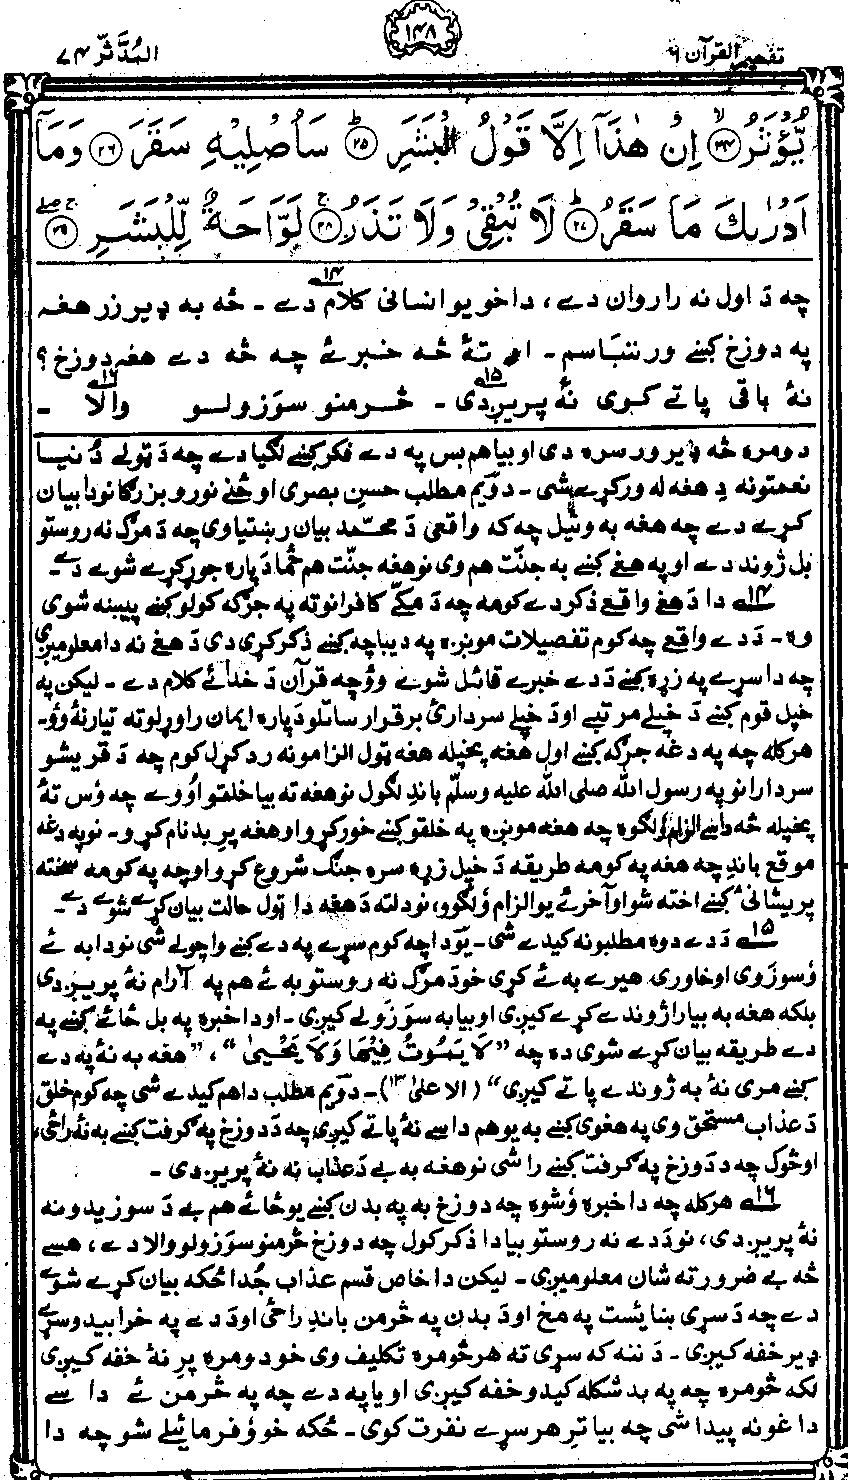 تفهیم القرآن ۶
۱۴۸
المُدَّثّر ۷۴
یُّؤْثَرُ ﴿۲۴﴾ اِنْ هٰذَاۤ اِلَّا قَوْلُ الْبَشَرِ ﴿۲۵﴾ سَاُصْلِیْهِ سَقَرَ ﴿۲۶﴾ وَمَاۤ
اَدْرٰىكَ مَا سَقَرُ ﴿۲۷﴾ لَا تُبْقِیْ وَلَا تَذَرُ ﴿۲۸﴾ لَوَّاحَةٌ لِّلْبَشَرِ ﴿۲۹﴾
چه دَ اول نه را روان دے، دا خو یو انسانی کلام دے ۱۴ـ څه به ډیر زر هغه
په دوزخ کښے ورننباسم ـ او تهٔ څه خبرئے چه څه دے هغه دوزخ؟
نهٔ باقی پاتے کوی نهٔ پریږدی ۱۵ـ څرمنو سوَزولو والا ۱۶ـ
دومره څه ډیر ورسره دی او بیا هم بس په دے فکر کښے لګیا دے چه دَ ټولے دُنیا
نعمتونه دِ هغه له ورکړے شی ـ دوَیم مطلب حسن بصری او ځنے نورو بزرګانو دا بیان
کړے دے چه هغه به وئیل چه که واقعی دَ محمّد بیان رښتیا وی چه دَ مرګ نه روستو
بل ژوند دے او په هغے کښے به جنّت هم وی نو هغه جنّت هم ځما دَپاره جوړ کړے شوے دے ـ
۱۴ دا دَ هغے واقعے ذکر دے کومه چه دَ مکّے کافرانو ته په جرګه کولو کښے پیښه شوی
وه ـ دَ دے واقعے چه کوم تفصیلات مونږه په دیباچه کښے ذکر کړی دی دَ هغے نه دا معلومیږی
چه دا سړے په زړه کښے دَ دے خبرے قائل شوے وؤ چه قرآن دَ خدائے کلام دے ـ لیکن په
خپل قوم کښے دَ خپلے مرتبے او دَ خپلے سردارئ برقرار ساتلو دَپاره ایمان راوړلو ته تیار نهٔ وؤ ـ
هرکله چه په دغه جرګه کښے اول هغه پخپله هغه ټول الزامونه رد کړل کوم چه دَ قریشو
سردارانو په رسول الله صلی الله علیه وسلّم باندِ لګول نو هغه ته بیا خلقو اوُوے چه وُس تهٔ
پخپله څه داسے الزام ولګوه چه هغه مونږه په خلقو کښے خور کړو او هغه پرِ بدنام کړو ـ نو په دغه
موقع باندِ چه هغه په کومه طریقه دَ خپل زړه سره جنګ شروع کړو او چه په کومه سخته
پریشانئ کښے اخته شو او آخر ئے یو الزام وُلګوو، نو دلته دَ هغه دا ټول حالت بیان کړے شوے دے ـ
۱۵ دَ دے دوه مطلبونه کیدے شی ـ یوَ دا چه کوم سړے په دے کښے واچولے شی نو دا به ئے
وُسوزوی او خاورې هیرے به ئے کړی خو دَ مرګ نه روستو به ئے هم په آرام نهٔ پریږدی
بلکه هغه به بیا راژوندے کړے کیږی او بیا به سوَزولے کیږی ـ او دا خبره په بل ځائے کښے په
دے طریقه بیان کړے شوی ده چه ”لَا یَمُوْتُ فِیْهَا وَلَا یَحْییٰ“، ”هغه به نهٔ په دے
کښے مری نهٔ به ژوندے پاتے کیږی“ (الاعلیٰ ۱۳) ـ دوَیم مطلب دا هم کیدے شی چه کوم خلق
دَ عذاب مستحق وی په هغوی کښے به یو هم داسے نهٔ پاتے کیږی چه دَ دوزخ په ګرفت کښے به نهٔ راځی،
او څوک چه دَ دوزخ په ګرفت کښے راشی نو هغه به بے دَ عذابَ نه نهٔ پریږدی ـ
۱۶ هرکله چه دا خبره وُشوه چه دوزخ به په بدن کښے یو ځائے هم بے دَ سوزیدو نه
نهٔ پریږدی، نو دَ دے نه روستو بیا دا ذکر کول چه دوزخ څرمنو سوَزولو والا دے، هسے
څه بے ضرورته شان معلومیږی ـ لیکن دا خاص قسم عذاب جُدا ځکه بیان کړے شوے
دے چه دَ سړی ښائست په مخ او دَ بدن په څرمن باندِ راځی او دَ دے په خرابیدو سړے
ډیر خفه کیږی ـ دَ ننه که سړی ته هر څومره تکلیف وی خو دومره پرِ نهٔ خفه کیږی
لکه څومره چه په بدشکله کیدو خفه کیږی او یا په دے چه په څرمن ئے داسے
داغونه پیدا شی چه بیا ترِ هر سړے نفرت کوی ـ ځکه خو وُفرمائیلے شو چه دا